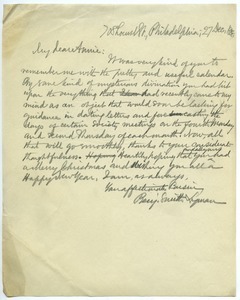 Philadelphia, 27 Dec.
My dear Annie:
It was very kind of you to
remember me with the pretty and useful calendar.
By some kind of mysterious divination you had hit
upon the very thing that had recently come to my
mind as an object that would soon be lacking for
guidance in dating letters and for
days of certain Society meetings on the fourth Monday
and second Thursday of each month. Now, all
that will go smoothly, thanks to your
thoughtfulness. Heartily hoping that you had
a merry Christmas and wishing you all a
Happy New Year, I am, as always,
Your affectionate Cousin
Benj. Smith Lyman